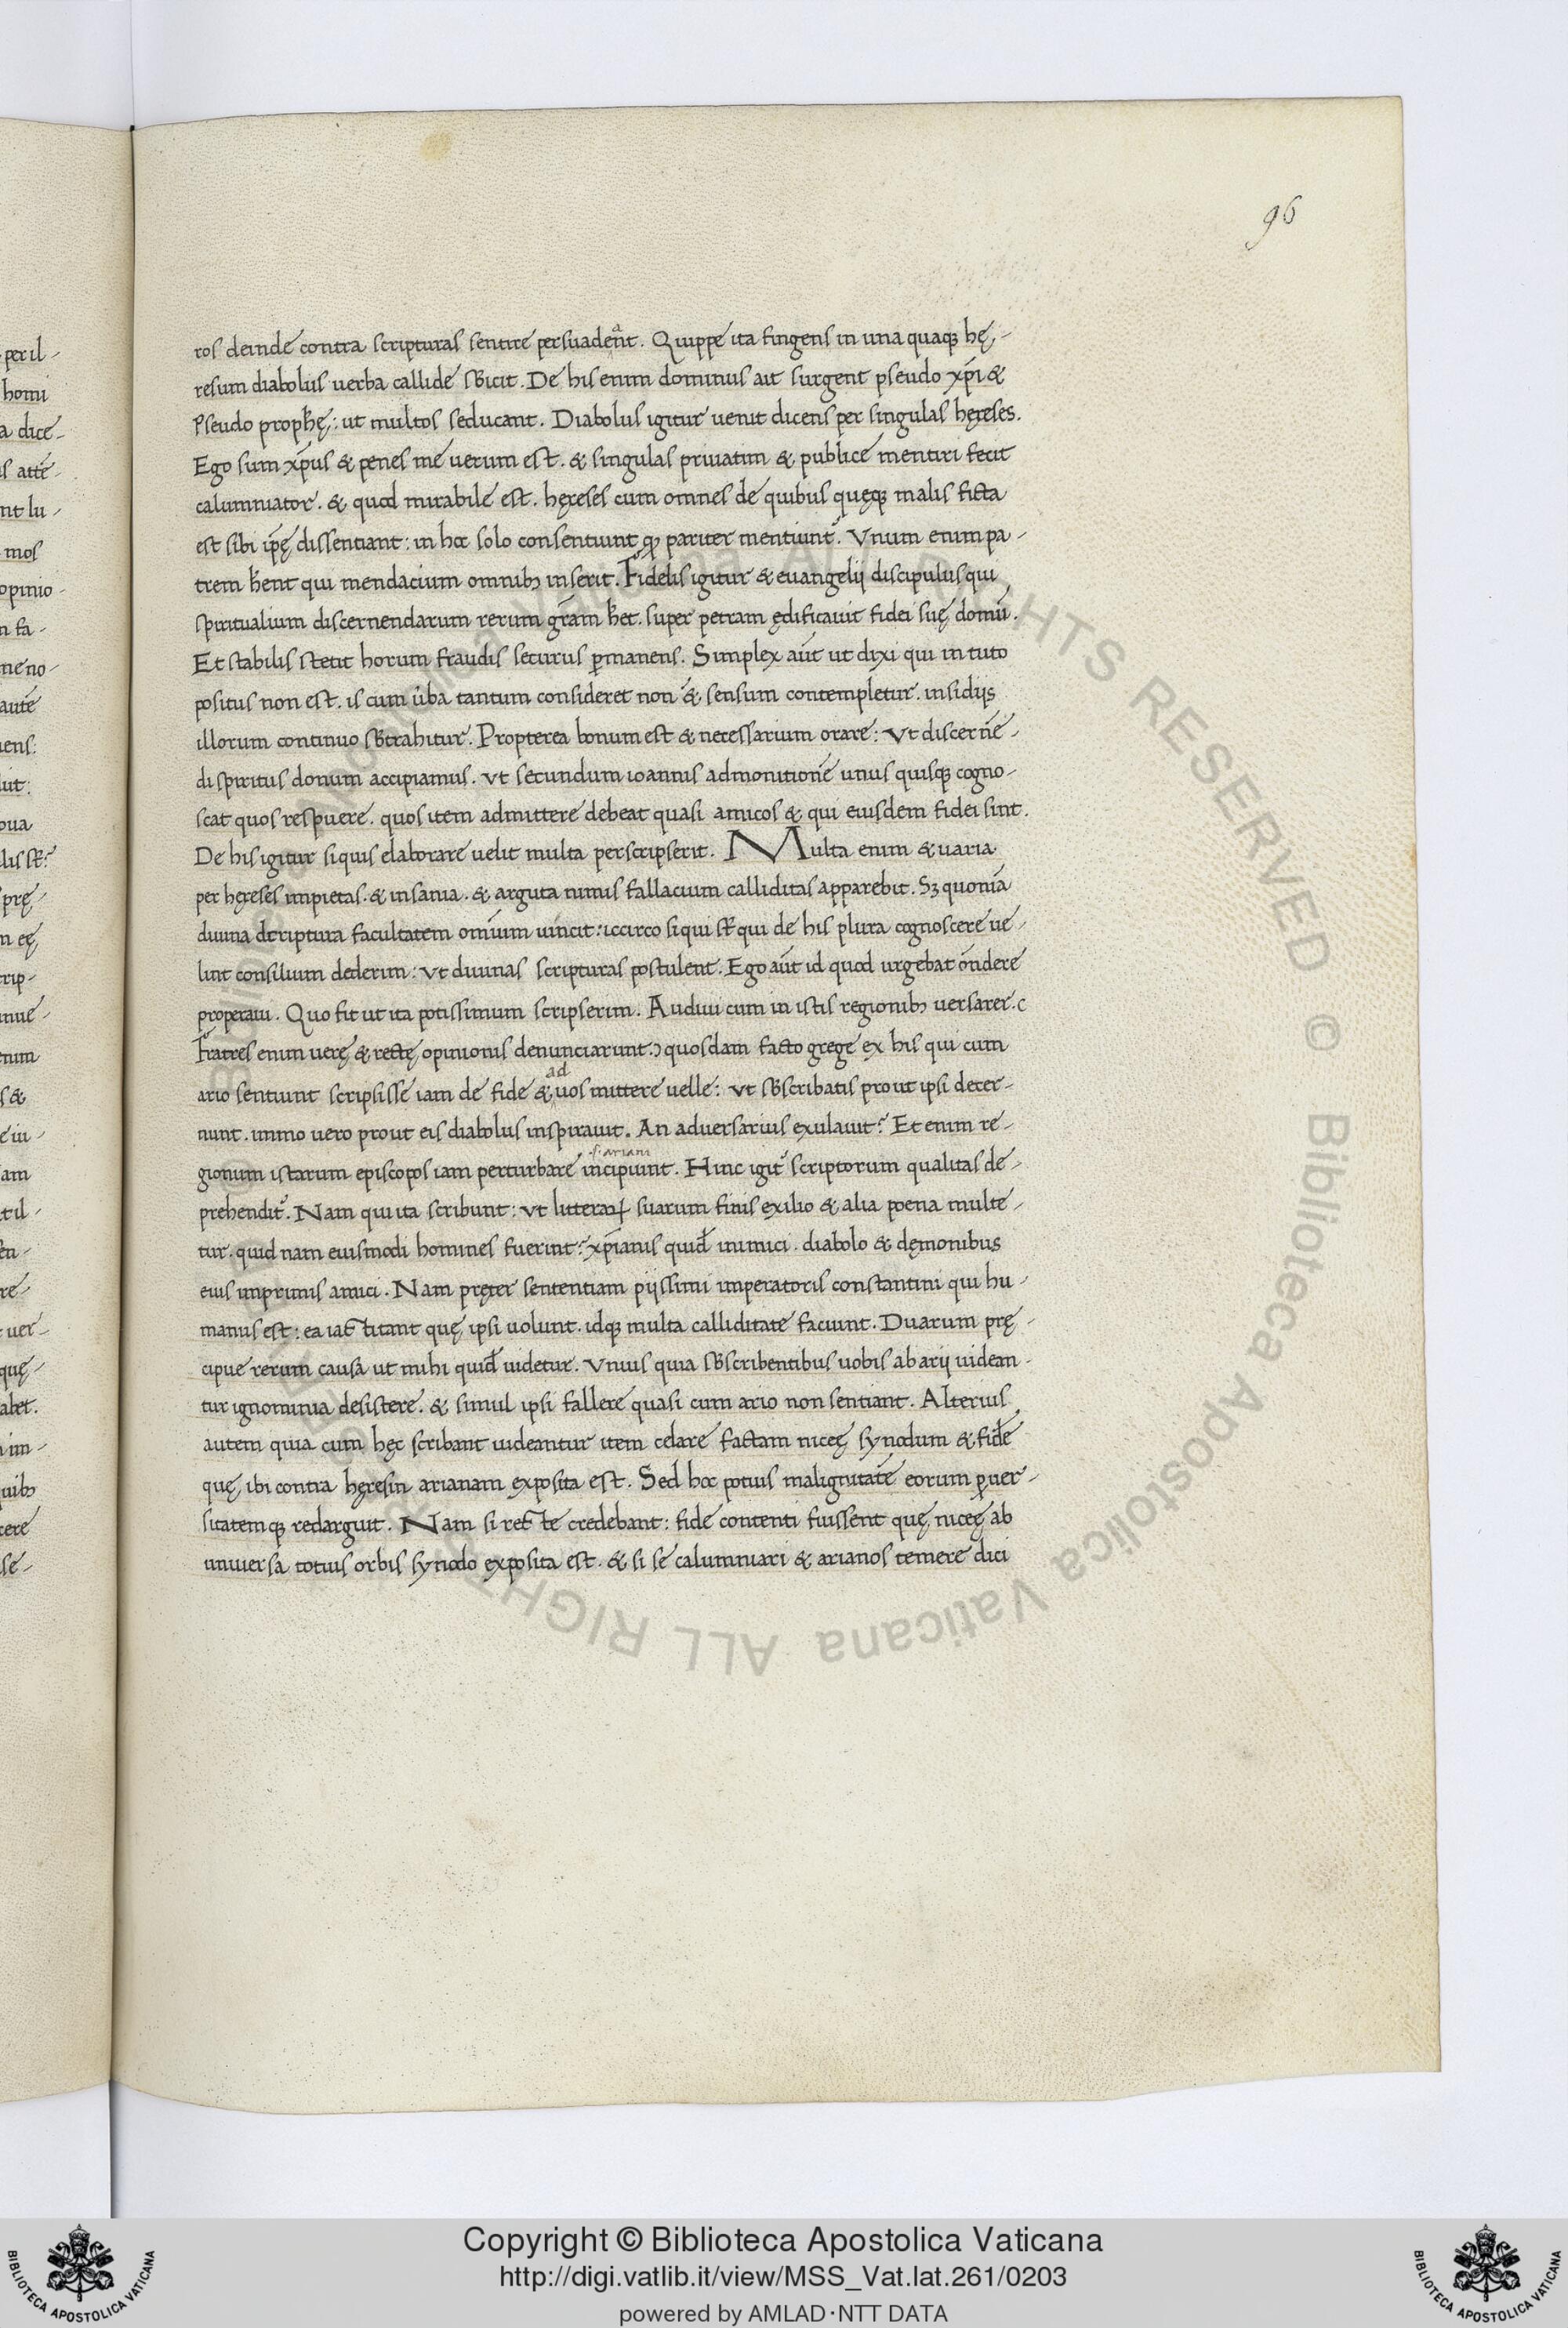 96
ros deinde contra scripturas sentire persuadeant. Quippe ita fingens in una quaque hę-
resum diabolus uerba callide sb̄icit. De his enim dominus ait surgent pseudo xp̄i &
Pseudo prophę: ut multos seducant. Diabolus igitur uenit dicens per singulas hęreses.
Ego sum xp̄us & penes me uerum est. & singulas priuatim & publice mentiri fecit
calumniator. & quod mirabile est. hęreses cum omnes de quibus quęque malis ficta
est sibi ip̄ę dissentiant: in hoc solo consentiunt quod pariter mentiunt̃. Vnum enim pa-
trem hent qui mendacium omnibꝫ inserit. Fidelis igitur & euangelij discipulus qui
spiritualium discernendarum rerum gr̄am het. super petram ędificauit fidei suę domū.
Et stabilis stetit horum fraudis securus ꝑmanens. Simplex aūt ut dixi qui in tuto
positus non est. is cum ũba tantum consideret non & sensum contempletur. insidijs
illorum continuo sb̄trahitur. Propterea bonum est & necessarium orare: Vt discernē-
di spiritus donum accipiamus. Vt secundum ioannis admonitionē unus quisque cogno-
scat quos respuere. quos item admittere debeat quasi amicos & qui eiusdem fidei sint.
De his igitur siquis elaborare uelit multa perscripserit. Multa enim & uaria
per hęreses impietas. & insania. & arguta nimis fallacium calliditas apparebit. Sꝫ quoniā
diuina dcriptura facultatem om̄ium uincit: iccirco siqui st̄ qui de his plura cognoscere ue-
lint consilium dederim: Vt diuinas scripturas postulent. Ego aūt id quod urgebat on̄dere
properaui. Quo fit ut ita potissimum scripserim. Audiui cum in istis regionibꝫ uersarer. c
Fratres enim uerę & rectę opinionis denunciarunt ɔ quosdam facto grege ex his qui cum
ad
ario sentiunt scripsisse iam de fide & uos mittere uelle: Vt sb̄scribatis prout ipsi decer-
nunt. immo uero prout eis diabolus inspirauit. An aduersarius exulauit? Et enim re-
.s. ariani
gionum istarum episcopos iam perturbare incipiunt. Hinc igit̃ scriptorum qualitas de-
prehendit̃. Nam qui ita scribunt: Vt litterarꝝ suarum finis exilio & alia poena multe-
tur. quid nam eiusmodi homines fuerint? xp̄ianis quid̄ inimici. diabolo & dęmonibus
eius imprimis amici. Nam pręter sententiam pijssimi imperatoris constantini qui hu-
manus est: ea iactitant quę ipsi uolunt. idque multa calliditate faciunt. Duarum prę-
cipue rerum causa ut mihi quid̄ uidetur. Vnius quia sb̄scribentibus uobis ab arij uidean-
tur ignominia desistere. & simul ipsi fallere quasi cum ario non sentiant. Alterius
autem quia cum hęc scribant uideantur item celare factam niceę synodum & fidē
quę ibi contra hęresin arianam exposita est. Sed hoc potius malignitatē eorum ꝑuer-
sitatemque redarguit. Nam si recte credebant: fide contenti fuissent quę niceę ab
uniuersa totius orbis synodo exposita est. & si se calumniari & arianos temere dici
Copyright © Biblioteca Apostolica Vaticana
http://digi.vatlib.it/view/MSS_Vat.lat.261/0203
powered by AMLAD·NTT DATA